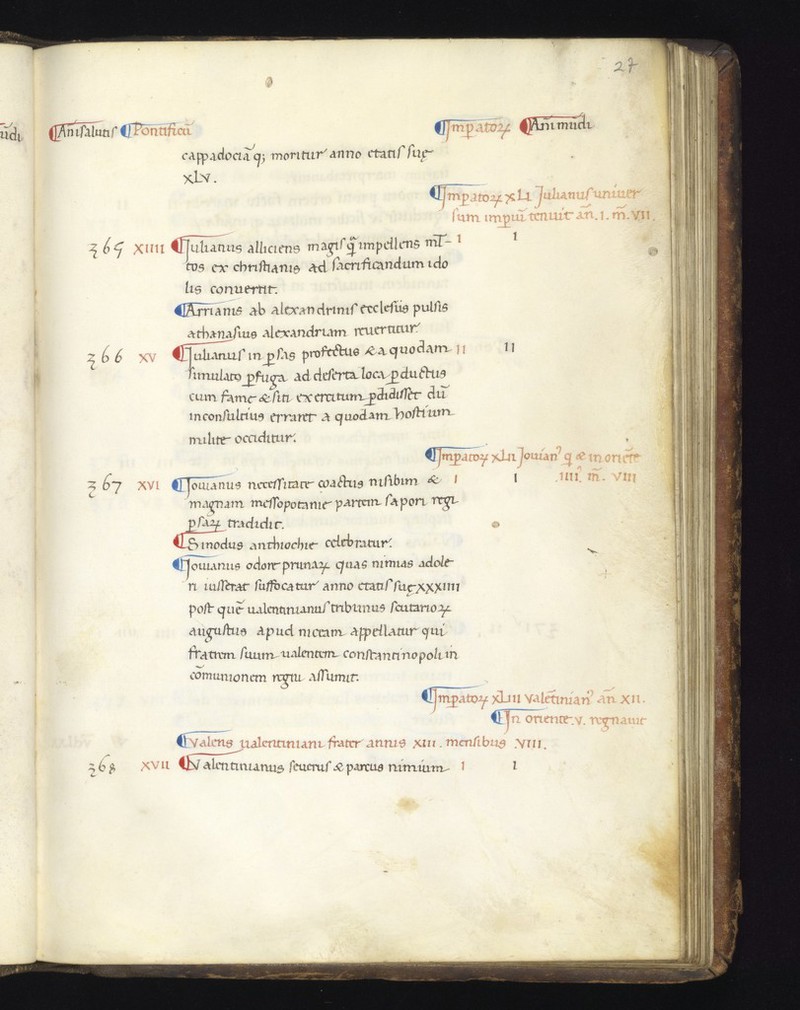 27
ūdi
Anı salutis Pontificū Imꝑatoꝝ Anı mundi
cappadociā q; moritur anno etatis suę
xlv.
Imꝑatoꝝ xLI Julianus univer
sum imꝑiū tenuit añ. I. m̄. VII.
365 XIIII Julianus alliciens magis q̄ impellens ml̄ 1 1
tos ex christianis ad sacrificandum ido
lis conuertit.
Arrianis ab alexandrinis ecclesiis pulsis
athanasius alexandriam reuertitur
366 XV Iulianus in ꝑsas profectus & a quodam 11 11
simulato ꝑfuga ad deserta loca ꝑductus
cum fame & siti exercitum ꝑdidisset dū
inconsultius erraret a quodam hostium
milite occiditur.
Imꝑatoꝝ xLII Jouian' q & in oriēte
.IIII. m̄. VIII
367 XVI Iouianus necessitate coactus nisibim & 1 1
magnam messopotanie partem sapori regi
ꝑsaꝝ tradidit.
Sinodus anthiochie celebratur.
Iouianus odore prunaꝝ quas nimias adole
ri iusserat suffocatur anno etatis suę XXXIIII
post quē ualentinianus tribunus scutarioꝝ
augustus apud niceam appellatur qui
fratrem suum ualentem constantinopoli in
cōmunionem regni assumit.
Imꝑatoꝝ xLIII Valētinian' añ XII.
In oriente .v. regnauit
Valens ualentiniani frater annis XIII. mensibus .VIII.
368 XVII Valentinianus seuerus & parcus nimium 1 1